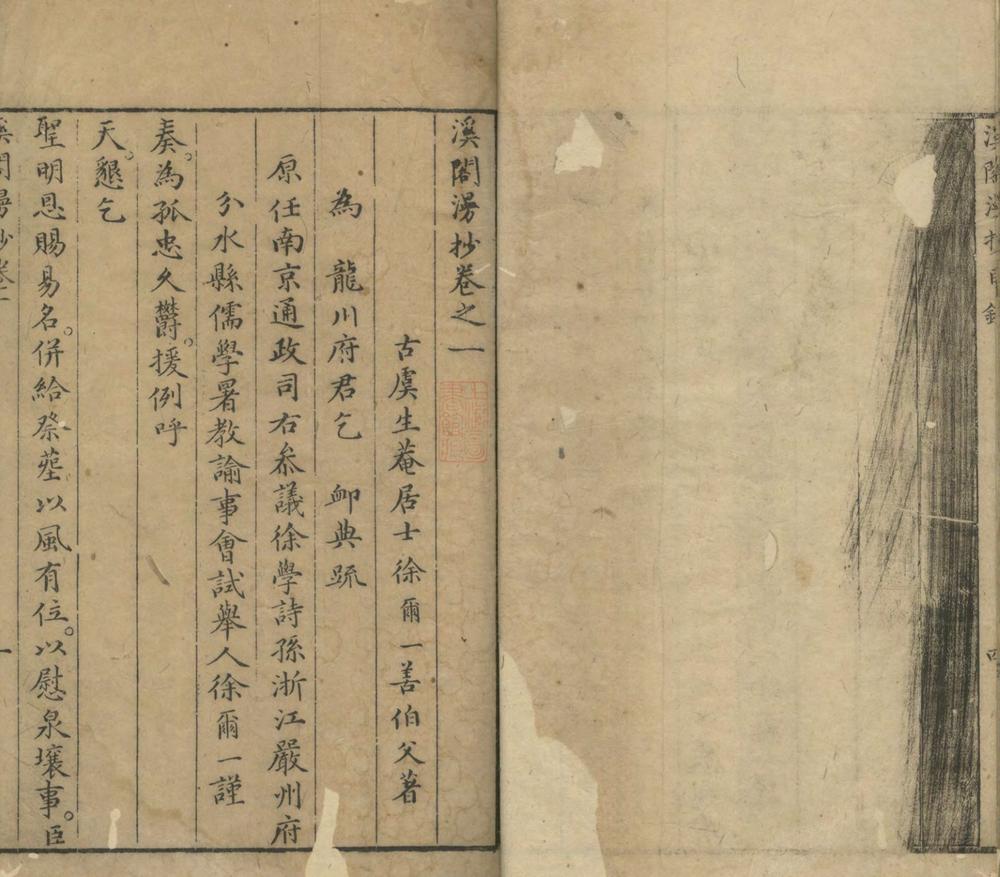 溪閣漫抄卷之一
古虞生菴居士徐爾一善伯父著
為　龍川府君乞　卹典疏
原任南京通政司右叅議徐學詩孫浙江嚴州府
分水縣儒學署教諭事會試舉人徐爾一謹
奏。為孤忠久欝。援例呼
天。懇乞
聖明恩賜易名。併給祭塟以風有位。以慰泉壤事。臣